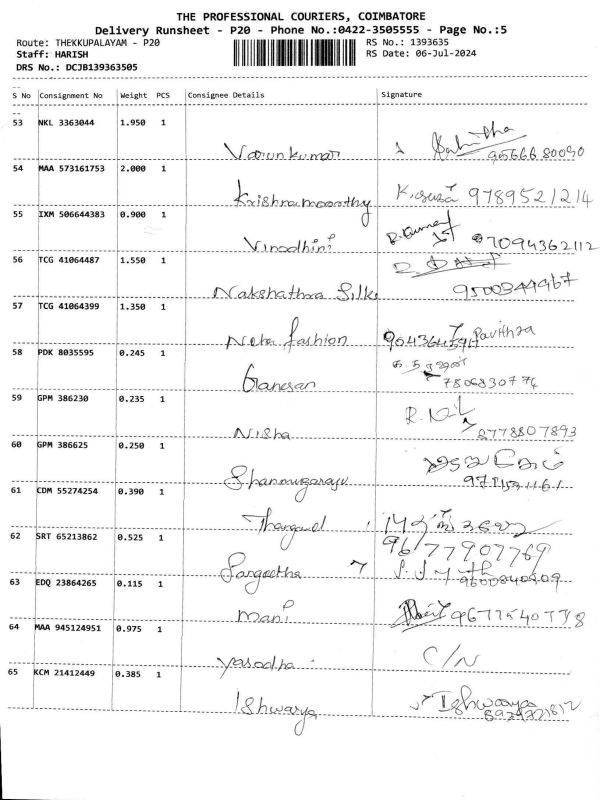 THE PROFESSIONAL COURIERS, COIMBATORE
Delivery Runsheet - P20 - Phone No.:0422-3505555 - Page No.:5
Route: THEKKUPALAYAM - P20
RS No.: 1393635
Staff: HARISH
RS Date: 06-Jul-2024
DRS No.: DCJB139363505
S No Consignment No Weight PCS Consignee Details Signature
53 NKL 3363044 1.950 1
Varunkumar
54 MAA 573161753 2.000 1
Krishnamoorthy 9789521214
55 IXM 506644383 0.900 1
Vinodhini R.Kumar 7094362112
56 TCG 41064487 1.550 1
Nakshathra Silks 9500344967
57 TCG 41064399 1.350 1
Neha fashion Pavithra
58 PDK 8035595 0.245 1
Ganesan 7806830774
59 GPM 386230 0.235 1
Nisha 8778807893
60 GPM 386625 0.250 1
Shanmugaraju
61 CDM 55274254 0.390 1
Thangavel
62 SRT 65213862 0.525 1
9677907769
Sangeetha 9600840909
63 EDQ 23864265 0.115 1
Mani 9677540778
64 MAA 945124951 0.975 1
Yasodha C/N
65 KCM 21412449 0.385 1
Ishwarya Ishwarya